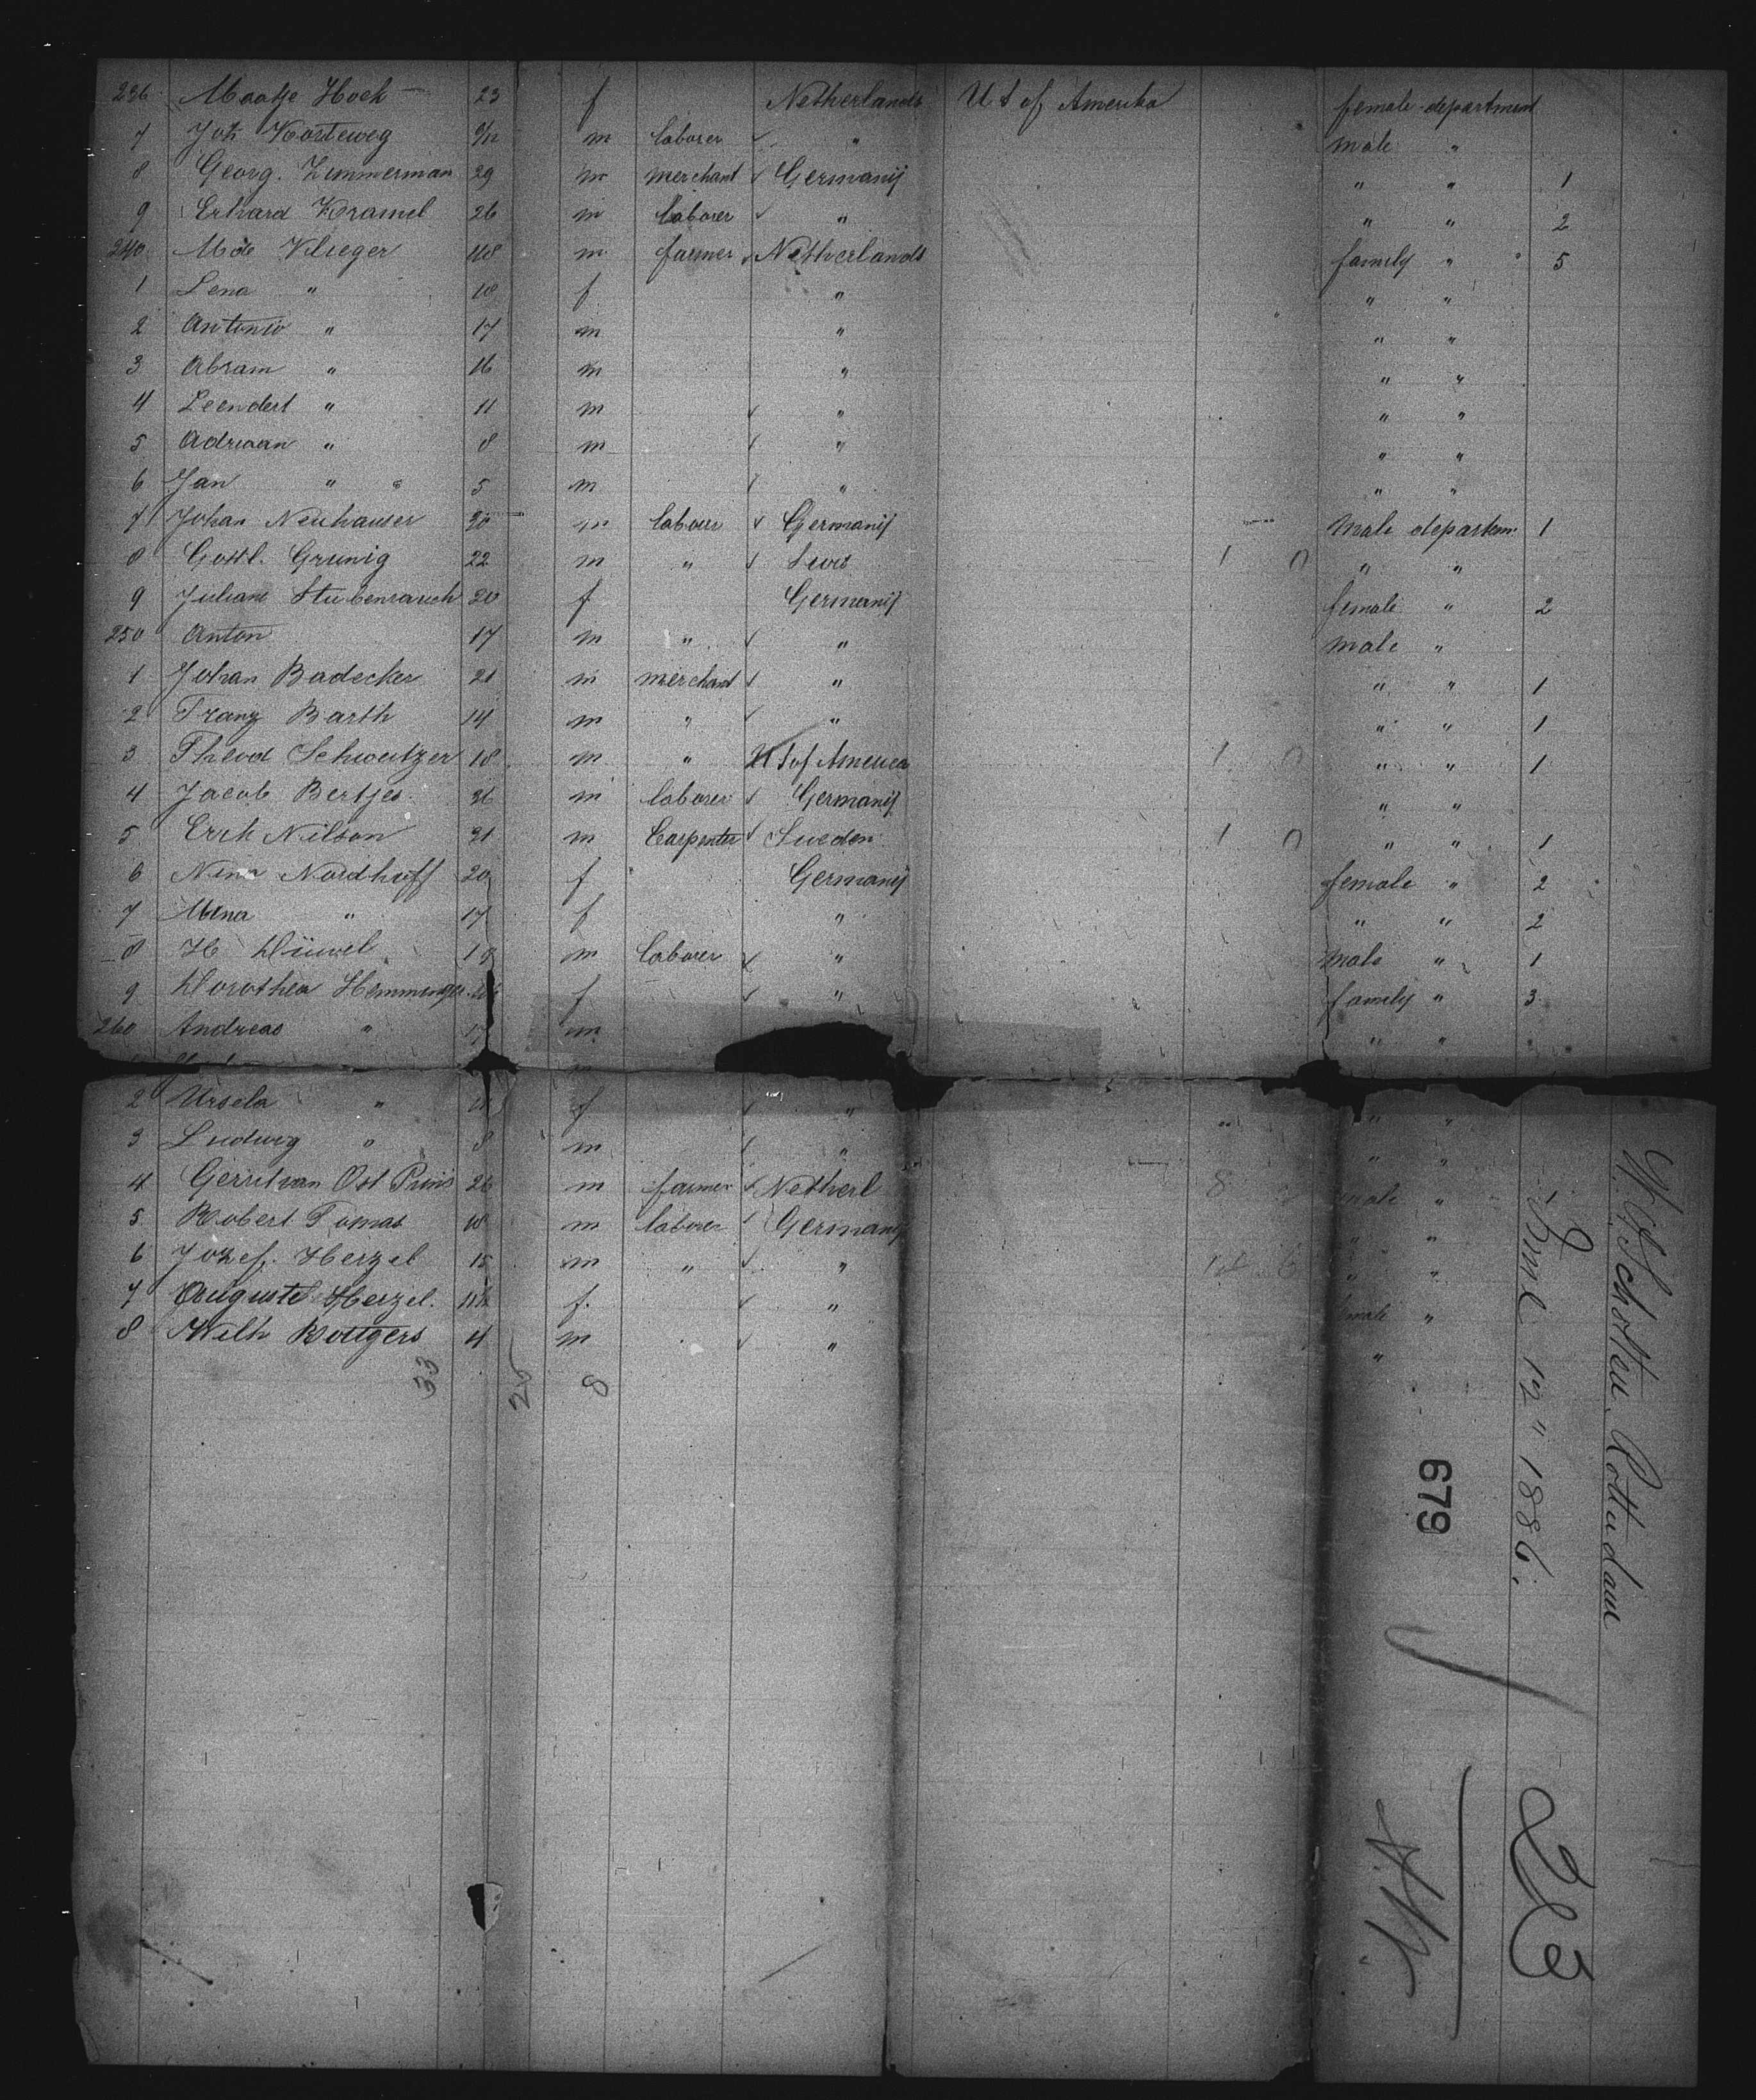 236 Maatje Hoek 23 f Netherlands U S of Amerika female department
7 Joh Korteweg 9/12 m laborer " male "
8 Georg. Zimmerman 29 m merchant Germanij " " 1
9 Erhard Kramel 26 m laborer " " " 2
240 M de Vlieger 48 m farmer Netherlands family " 5
1 Lena " 18 f " " "
2 Antonio " 17 m " " "
3 Abram " 16 m " " "
4 Leendert " 11 m " " "
5 Adriaan " 8 m " " "
6 Jan " 5 m " " "
7 Johan Neuhauser 20 m labour Germanij Male departem 1
8 Gottl. Grunig 22 m " 1 0 " "
9 Juliane Stubenrauch 20 f Germanij female " 2
250 Anton 17 m " " male "
1 Johan Badecker 21 m merchant " " " 1
2 Franz Barth 14 m " " " " 1
3 Theod Schweitzer 18 m " U S of America 1 0 " " 1
4 Jacob Bertjes 36 m laborer Germanij " "
5 Erik Nilson 21 m Carpenter Sweden 1 0 " " 1
6 Nina Nordhoff 20 f Germanij female " 2
7 Mina " 17 f " " " 2
8 H Düwel m laborer " Male " 1
9 Dorothea f " family " 3
260 Andreas " 17 m " "
2 Ursela " f " " " "
3 Ludwig " 8 m " " "
4 Gerrit van Ost 26 m farmer Netherl 8 male " 1
5 Robert Tomas 18 m laborer Germanij " "
6 Jozef. Herzel 15 m " " " "
7 Auguste Herzel. f. " "
8 Wilh Rottgers 4 m " "
33 8
W. A. Scholten. Rotterdam
12 " 1886.
679